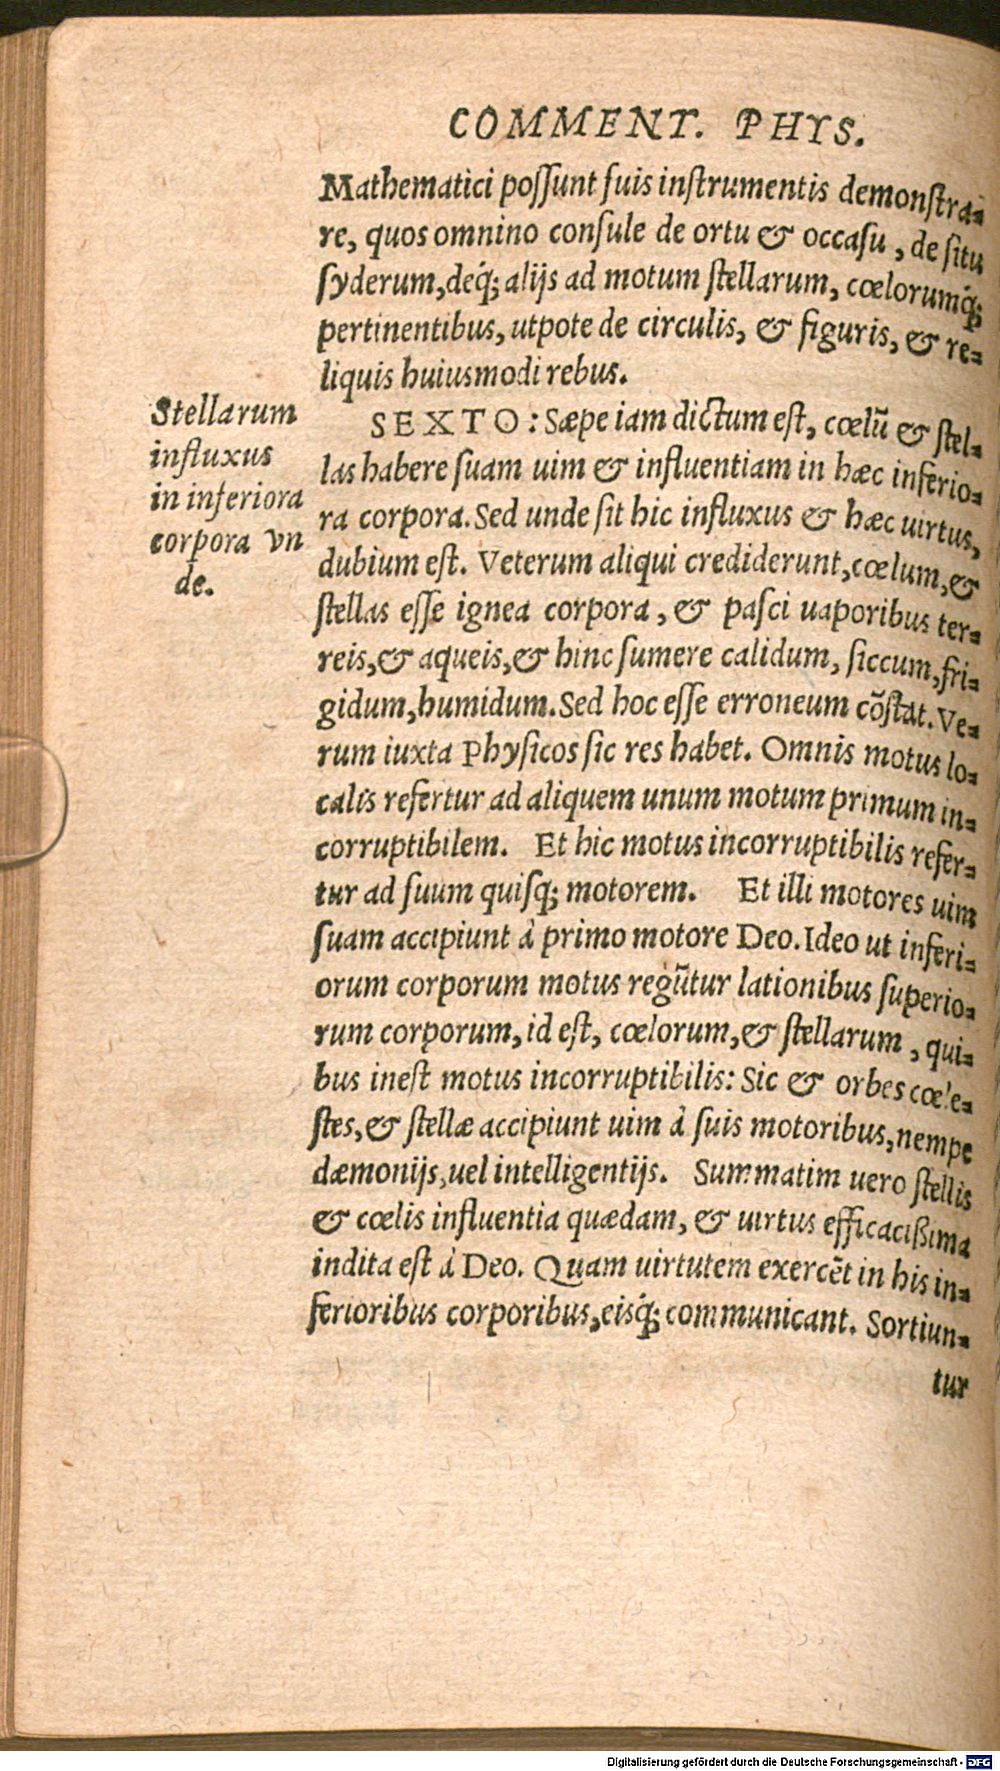 COMMENT. PHYS.
Mathematici poſſunt ſuis inſtrumentis demonſtra-
re, quos omnino conſule de ortu & occaſu, de ſitu
ſyderum, deq́; alijs ad motum ſtellarum, cœlorumq́;
pertinentibus, utpote de circulis, & figuris, & re-
liquis huiusmodi rebus.
Stellarum
influxus
in inferiora
corpora vn
de.
SEXTO: Sæpe iam dictum eſt, cœlũ & ſtel-
las habere ſuam uim & influentiam in hæc inferio-
ra corpora. Sed unde ſit hic influxus & hæc uirtus,
dubium eſt. Veterum aliqui crediderunt, cœlum, &
ſtellas eſſe ignea corpora, & paſci uaporibus ter-
reis, & aqueis, & hinc ſumere calidum, ſiccum, fri-
gidum, humidum. Sed hoc eſſe erroneum cõſtat. Ve-
rum iuxta Phyſicos ſic res habet. Omnis motus lo-
calis refertur ad aliquem unum motum primum in-
corruptibilem. Et hic motus incorruptibilis refer-
tur ad ſuum quiſq; motorem. Et illi motores uim
ſuam accipiunt à primo motore Deo. Ideo ut inferi-
orum corporum motus regũtur lationibus ſuperio-
rum corporum, id eſt, cœlorum, & ſtellarum, qui-
bus ineſt motus incorruptibilis: Sic & orbes cœle-
ſtes, & ſtellæ accipiunt uim à ſuis motoribus, nempe
dæmonijs, uel intelligentijs. Summatim uero ſtellis
& cœlis influentia quædam, & uirtus efficacißima
indita eſt à Deo. Quam uirtutem exercẽt in his in-
ferioribus corporibus, eisq́; communicant. Sortiun-
tur
Digitalisierung gefördert durch die Deutsche Forschungsgemeinschaft - DFG